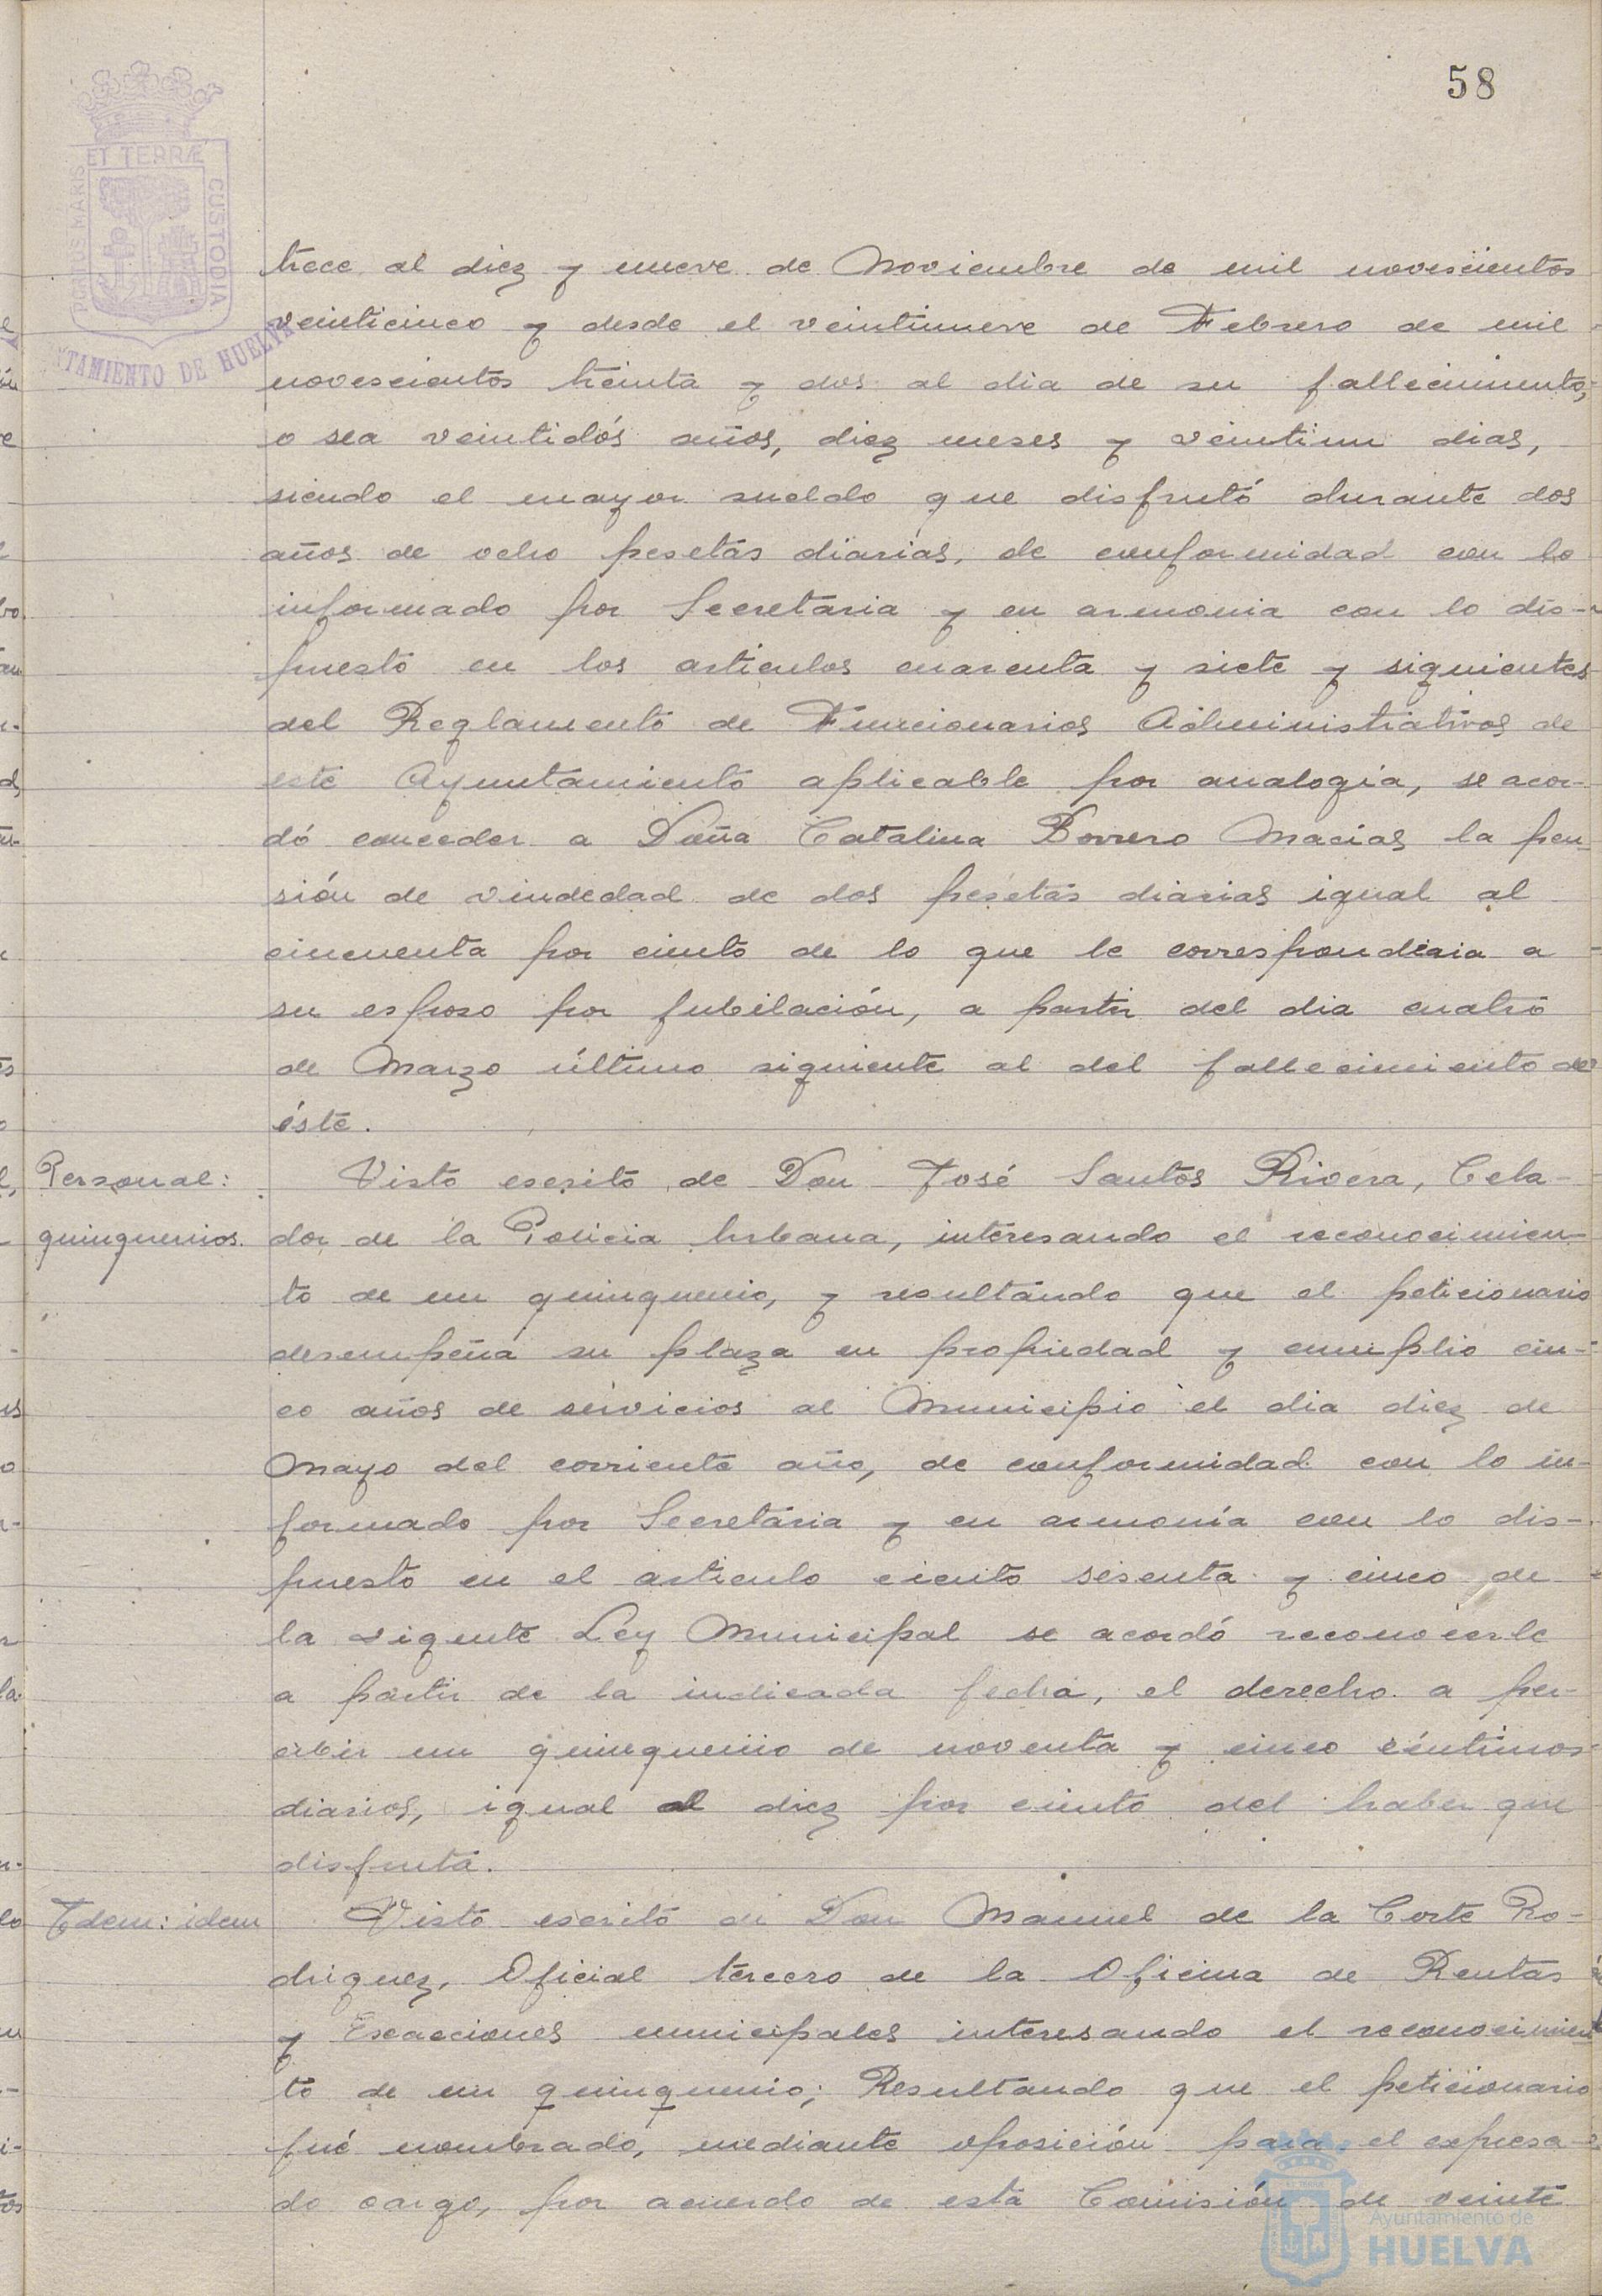 58
PORTUS MARIS
ET TERRÆ
CUSTODIA
NTAMIENTO DE HUELVA
trece al diez y nueve de Noviembre de mil novescientos
veinticinco y desde el veintinueve de Febrero de mil
novescientos treinta y dos al dia de su fallecimiento,
o sea veintidós años, diez meses y veintiun dias,
siendo el mayor sueldo que disfrutó durante dos
años de ocho pesetas diarias, de conformidad con lo
informado por Secretaria y en armonia con lo dis-
puesto en los articulos cuarenta y siete y siguientes
del Reglamento de Funcionarios Administrativos de
este Ayuntamiento aplicable por analogia, se acor-
dó conceder a Doña Catalina Borrero Macias la pen-
sión de viudedad de dos pesetas diarias igual al
cincuenta por ciento de lo que le corresponderia a
su esposo por jubilación, a partir del dia cuatro
de Marzo último siguiente al del fallecimiento de
éste.
Personal:
quinquenios.
Visto escrito de Don José Santos Rivera, Cela-
dor de la Policia Urbana, interesando el reconocimien-
to de un quinquenio, y resultando que el peticionario
desempeña su plaza en propiedad y cumplio cin-
co años de servicios al Municipio el dia diez de
Mayo del corriente año, de conformidad con lo in-
formado por Secretaria y en armonía con lo dis-
puesto en el articulo ciento sesenta y cinco de
la vigente Ley Municipal se acordó reconocerle
a partir de la indicada fecha, el derecho a per-
cibir un quinquenio de noventa y cinco céntimos
diarios, igual al diez por ciento del haber que
disfruta.
Idem: idem
Visto escrito de Don Manuel de la Corte Ro-
driguez, Oficial tercero de la Oficina de Rentas
y Exacciones municipales interesando el reconocimien
to de un quinquenio; Resultando que el peticionario
fué nombrado, mediante oposición para el expresa-
do cargo, por acuerdo de esta Comisión de veinte
Ayuntamiento de
HUELVA